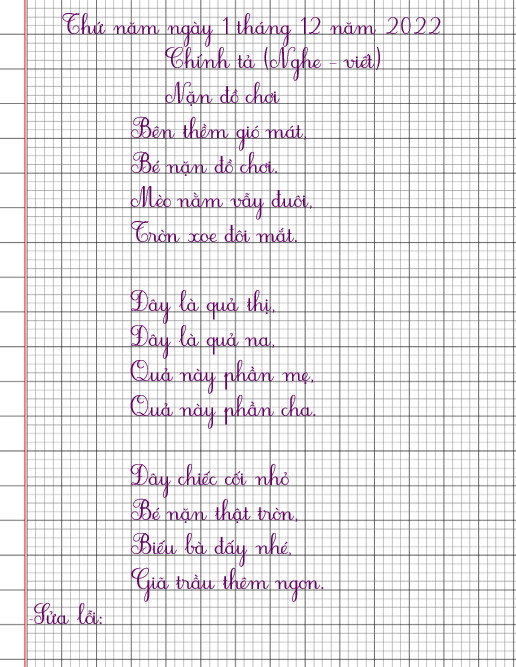 Thứ năm ngày 1 tháng 12 năm 2022
Chính tả (Nghe - viết)
Nặn đồ chơi
Bên thềm gió mát,
Bé nặn đồ chơi.
Mèo nằm vẫy đuôi,
Tròn xoe đôi mắt.
Đây là quả thị,
Đây là quả na,
Quả này phần mẹ,
Quả này phần cha.
Đây chiếc cối nhỏ
Bé nặn thật tròn,
Biếu bà đấy nhé,
Giã trầu thêm ngon.
-Sửa lỗi: